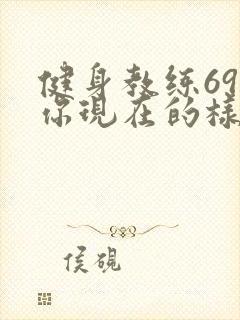 健身教练69
你现在的樣
侯砚